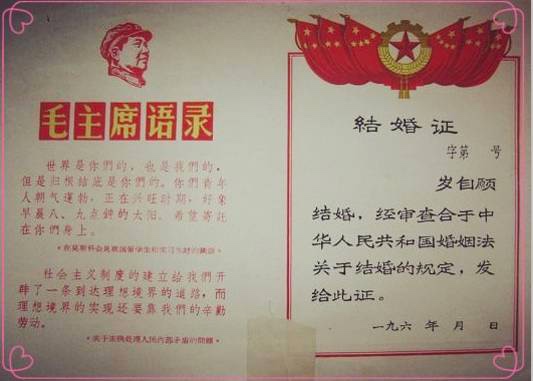 毛主席语录
世界是你們的，也是我們的，
但是归根结底是你們的。你們青年
人朝气蓬勃，正在兴旺时期，好象
早晨八、九点鐘的太阳。希望寄託
在你們身上。
在莫斯科会見我国留学生和实习生时的談話
社会主义制度的建立給我們开
辟了一条到达理想境界的道路，而
理想境界的实现还要靠我們的辛勤
劳动。
关于正确处理人民内部矛盾的問題
結婚证
字第 号
岁自願
结婚，经审查合于中
华人民共和国婚姻法
关于结婚的规定，发
给此证。
一九六 年 月 日